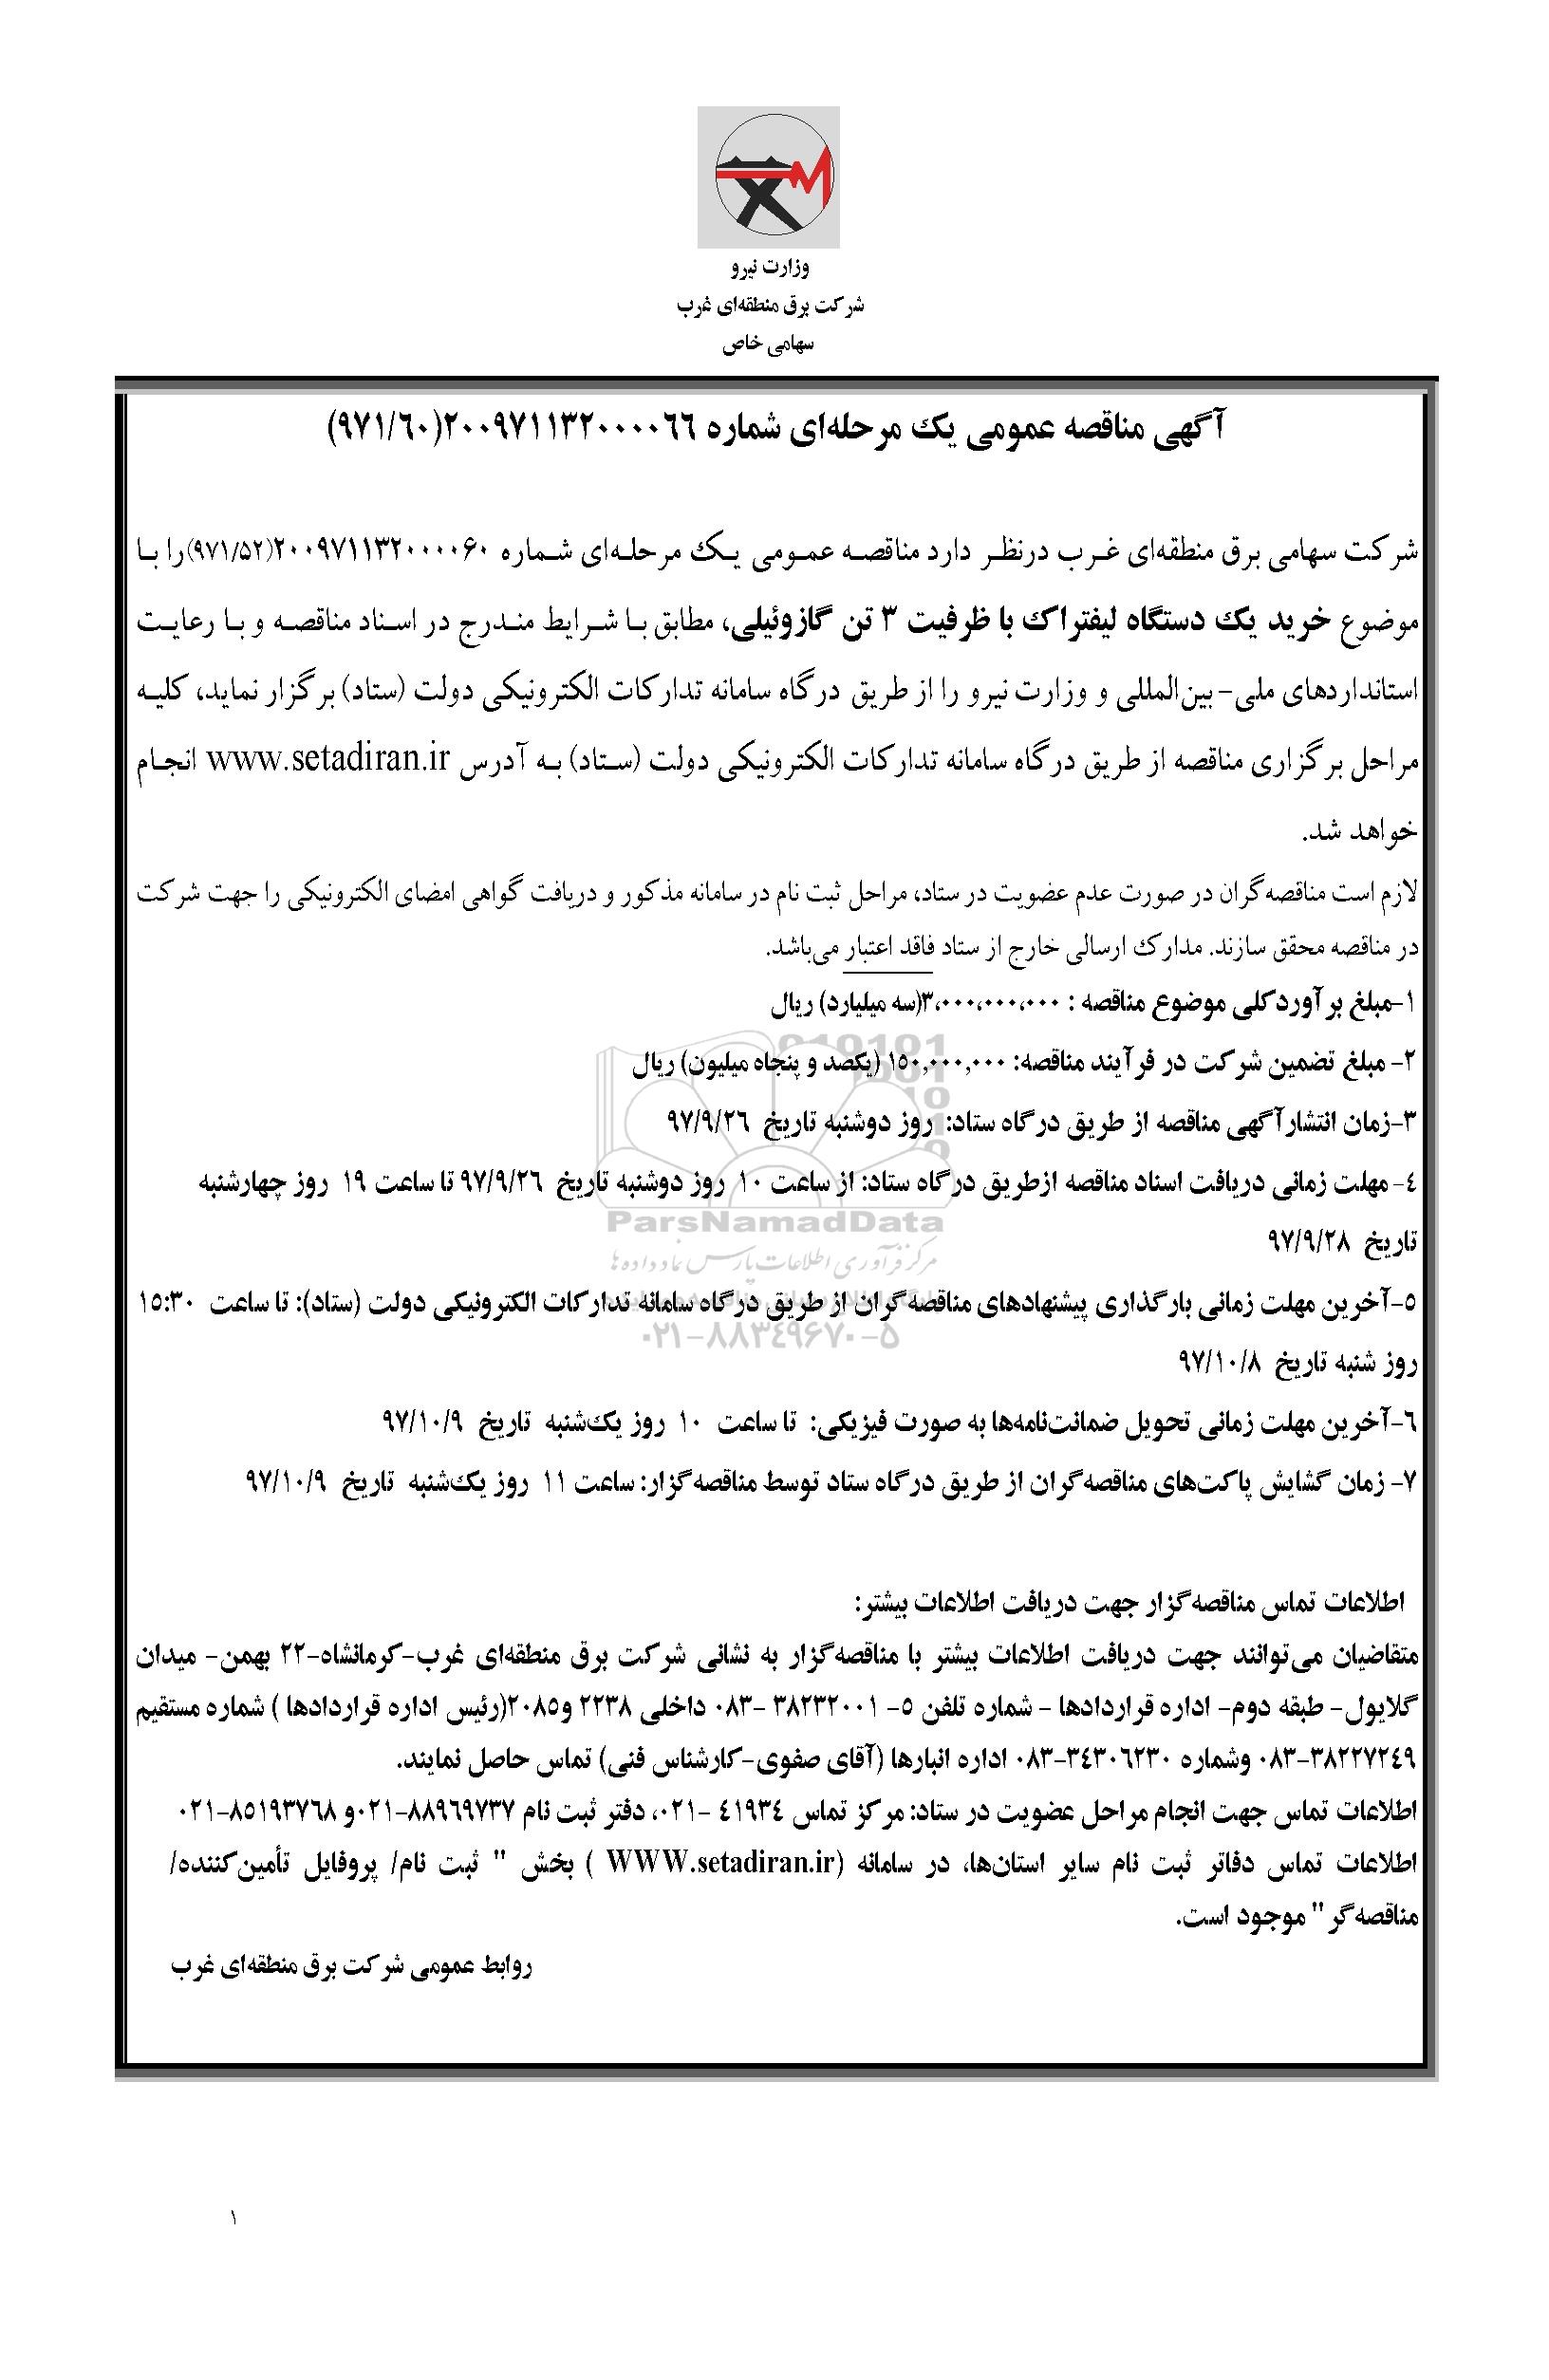 وزارت نیرو
شرکت برق منطقه‌ای غرب
سهامی خاص
آگهی مناقصه عمومی یک مرحله‌ای شماره ۲۰۰۹۷۱۱۳۲۰۰۰۰۶۶(۹۷۱/۶۰)
شرکت سهامی برق منطقه‌ای غرب درنظر دارد مناقصه عمومی یک مرحله‌ای شماره ۲۰۰۹۷۱۱۳۲۰۰۰۰۶۰(۹۷۱/۵۲)را با
موضوع خرید یک دستگاه لیفتراک با ظرفیت ۳ تن گازوئیلی، مطابق با شرایط مندرج در اسناد مناقصه و با رعایت
استانداردهای ملی-بین‌المللی و وزارت نیرو را از طریق درگاه سامانه تدارکات الکترونیکی دولت (ستاد) برگزار نماید، کلیه
مراحل برگزاری مناقصه از طریق درگاه سامانه تدارکات الکترونیکی دولت (ستاد) به آدرس www.setadiran.ir انجام
خواهد شد.
لازم است مناقصه‌گران در صورت عدم عضویت در ستاد، مراحل ثبت نام در سامانه مذکور و دریافت گواهی امضای الکترونیکی را جهت شرکت
در مناقصه محقق سازند. مدارک ارسالی خارج از ستاد فاقد اعتبار می‌باشد.
۱-مبلغ برآوردکلی موضوع مناقصه : ۳،۰۰۰،۰۰۰،۰۰۰(سه میلیارد) ریال
۲- مبلغ تضمین شرکت در فرآیند مناقصه: ۱۵۰,۰۰۰,۰۰۰ (یکصد و پنجاه میلیون) ریال
۳-زمان انتشارآگهی مناقصه از طریق درگاه ستاد: روز دوشنبه تاریخ ۹۷/۹/۲۶
۴- مهلت زمانی دریافت اسناد مناقصه ازطریق درگاه ستاد: از ساعت ۱۰ روز دوشنبه تاریخ ۹۷/۹/۲۶ تا ساعت ۱۹ روز چهارشنبه
ParsNamadData
تاریخ ۹۷/۹/۲۸
مرکز فرآوری اطلاعات پارس نماد داده‌ها
۵-آخرین مهلت زمانی بارگذاری پیشنهادهای مناقصه‌گران از طریق درگاه سامانه تدارکات الکترونیکی دولت (ستاد): تا ساعت ۱۵:۳۰
۰۲۱-۸۸۳۴۹۶۷۰-۵
روز شنبه تاریخ ۹۷/۱۰/۸
۶-آخرین مهلت زمانی تحویل ضمانت‌نامه‌ها به صورت فیزیکی: تا ساعت ۱۰ روز یک‌شنبه تاریخ ۹۷/۱۰/۹
۷- زمان گشایش پاکت‌های مناقصه‌گران از طریق درگاه ستاد توسط مناقصه‌گزار: ساعت ۱۱ روز یک‌شنبه تاریخ ۹۷/۱۰/۹
اطلاعات تماس مناقصه‌گزار جهت دریافت اطلاعات بیشتر:
متقاضیان می‌توانند جهت دریافت اطلاعات بیشتر با مناقصه‌گزار به نشانی شرکت برق منطقه‌ای غرب-کرمانشاه-۲۲ بهمن- میدان
گلایول- طبقه دوم- اداره قراردادها - شماره تلفن ۵- ۳۸۲۳۲۰۰۱ -۰۸۳ داخلی ۲۲۳۸ و۲۰۸۵(رئیس اداره قراردادها ) شماره مستقیم
۰۸۳-۳۸۲۲۷۲۴۹ وشماره ۰۸۳-۳۴۳۰۶۲۳۰ اداره انبارها (آقای صفوی-کارشناس فنی) تماس حاصل نمایند.
اطلاعات تماس جهت انجام مراحل عضویت در ستاد: مرکز تماس ۴۱۹۳۴ -۰۲۱، دفتر ثبت نام ۰۲۱-۸۸۹۶۹۷۳۷و ۰۲۱-۸۵۱۹۳۷۶۸
اطلاعات تماس دفاتر ثبت نام سایر استان‌ها، در سامانه (WWW.setadiran.ir ) بخش " ثبت نام/ پروفایل تأمین‌کننده/
مناقصه‌گر " موجود است.
روابط عمومی شرکت برق منطقه‌ای غرب
۱